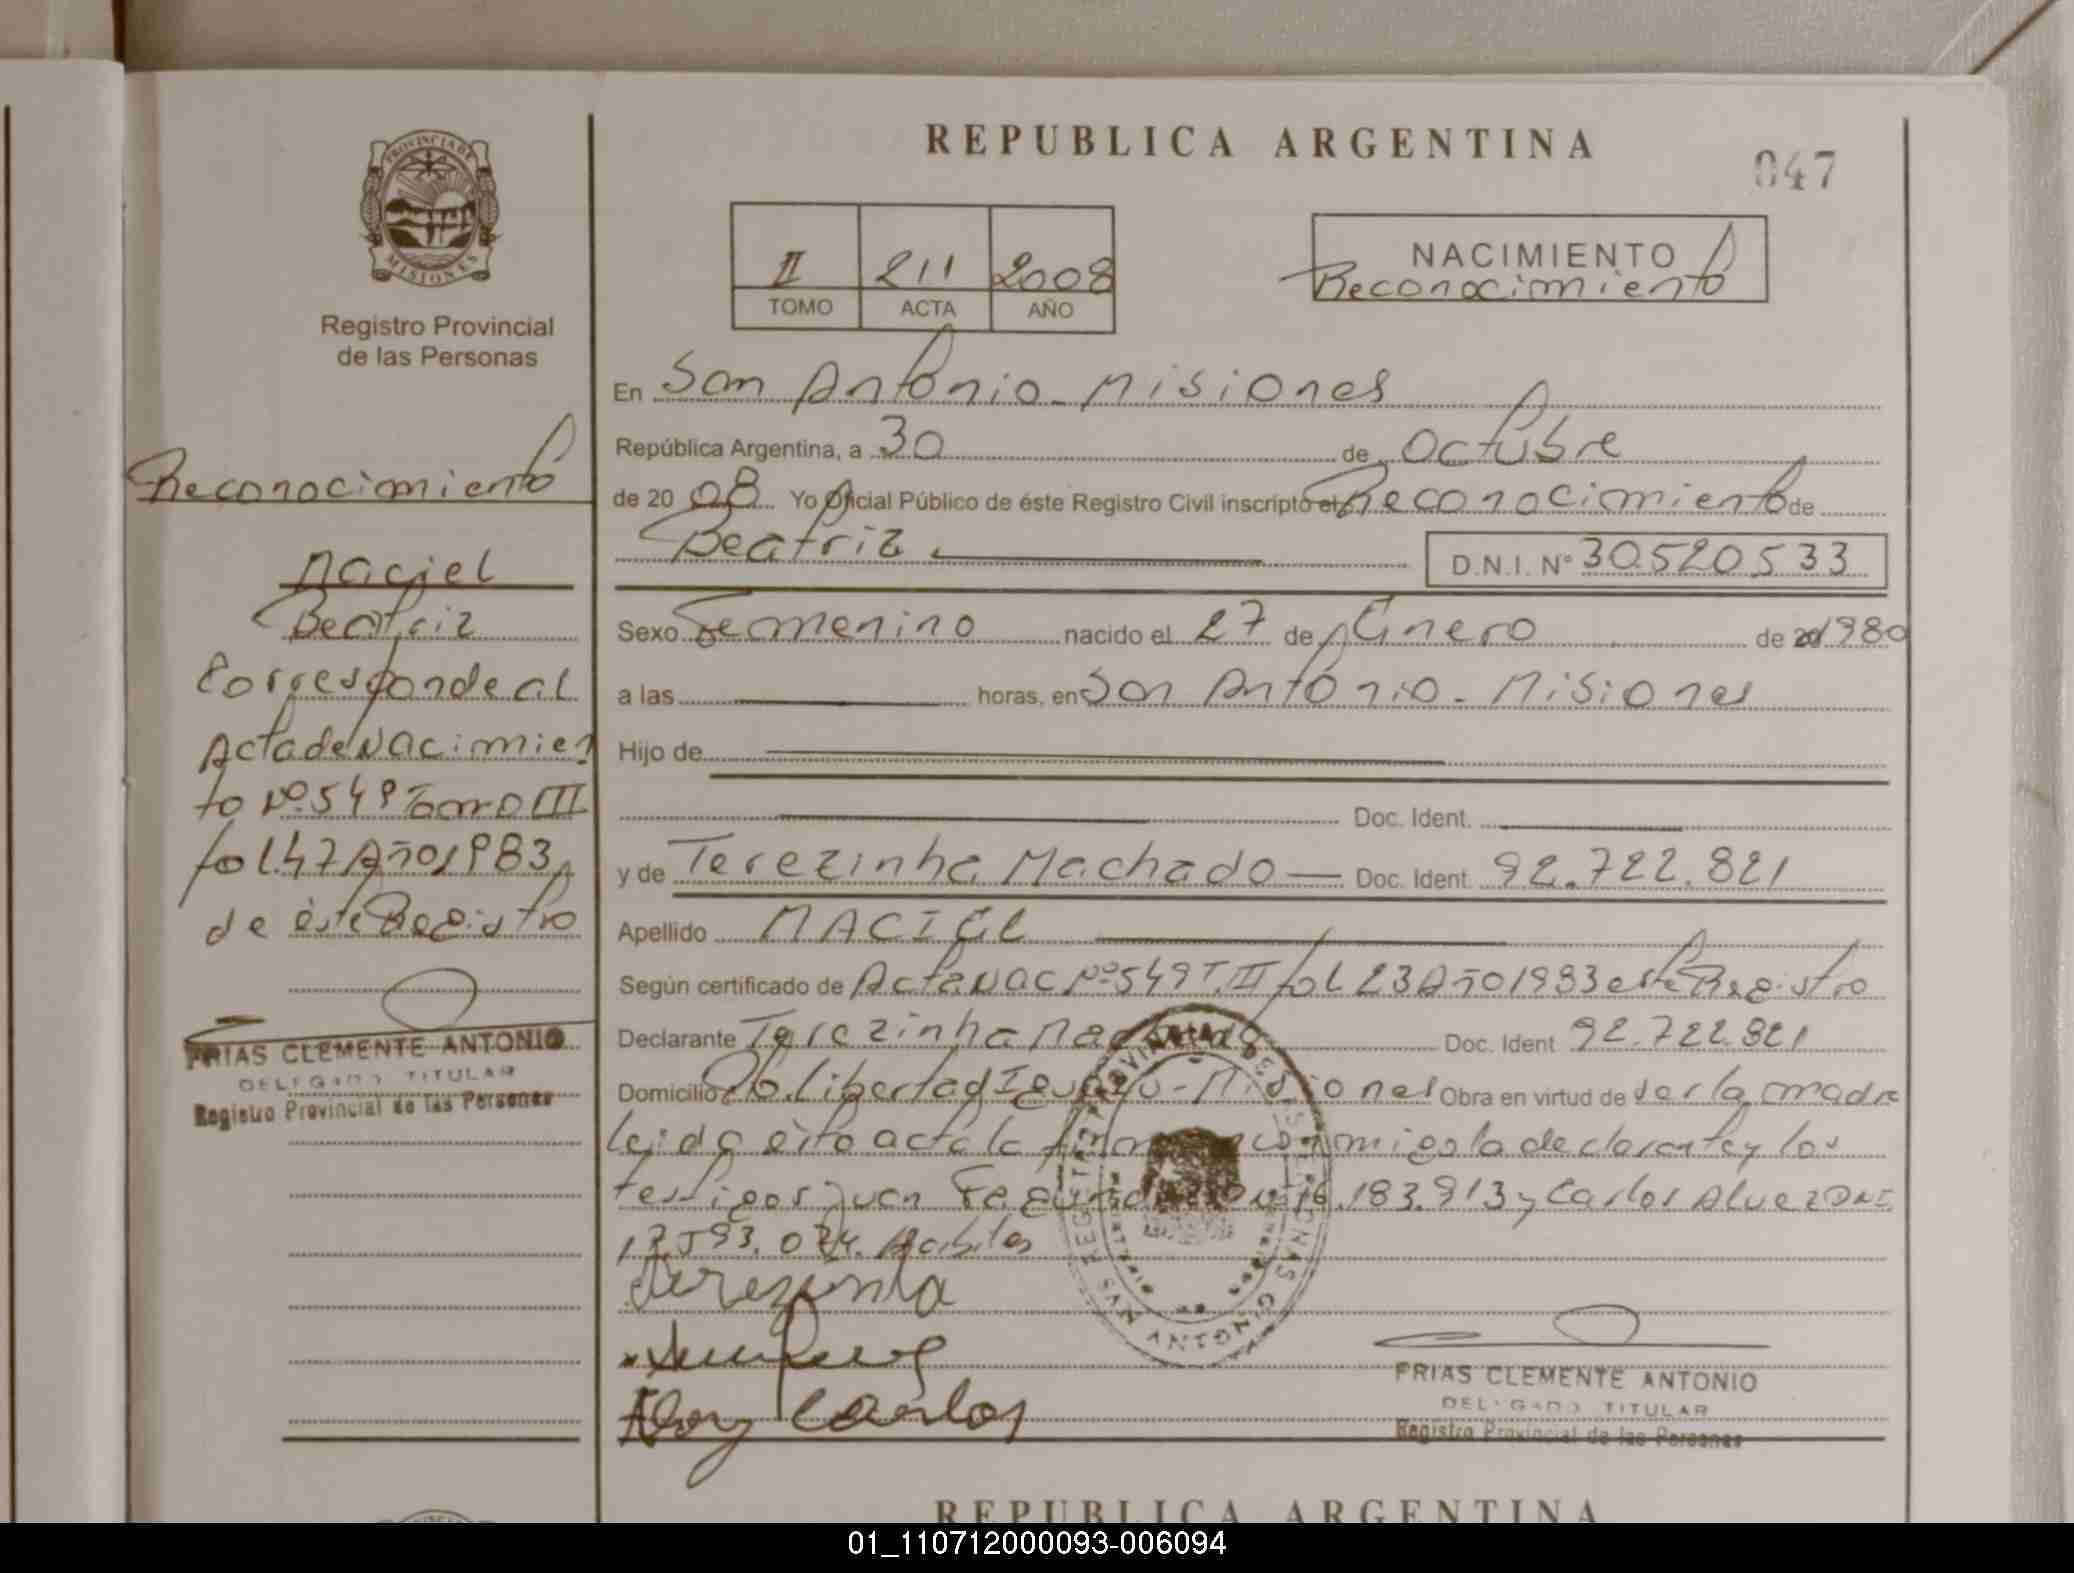 REPUBLICA ARGENTINA
047
PROVINCIA DE
MISIONES
Registro Provincial
de las Personas
II 211 2008
TOMO ACTA AÑO
NACIMIENTO
Reconocimiento
Reconocimiento
Maciel
Beatriz
Corresponde al
Acta de Nacimien
to Nº 549 Tomo III
fol. 47 Año 1983
de este Registro
FRIAS CLEMENTE ANTONIO
DELEGADO TITULAR
Registro Provincial de las Personas
En San Antonio - Misiones
República Argentina, a 30 de Octubre
de 20 08 Yo Oficial Público de éste Registro Civil inscripto el Reconocimiento de
Beatriz D.N.I. Nº 30.520.533
Sexo Femenino nacido el 27 de Enero de 20 1980
a las horas, en San Antonio - Misiones
Hijo de
Doc. Ident.
y de Terezinha Machado Doc. Ident. 92.722.821
Apellido MACIEL
Según certificado de Acta Nac Nº 549 T. III fol 23 Año 1983 este Registro
Declarante Terezinha Machado Doc. Ident 92.722.821
Domicilio Pto. Libertad Iguazú - Misiones Obra en virtud de ser la madre
leida esta acta la firman conmigo la declarante y los
testigos Juan 16.183.913 y Carlos Alvez DNI
Habiles
Terezinha
Eloy Carlos
REGISTRO PROVINCIAL DE LAS PERSONAS
SAN ANTONIO
FRIAS CLEMENTE ANTONIO
DELEGADO TITULAR
Registro Provincial de las Personas
REPUBLICA ARGENTINA
01_110712000093-006094